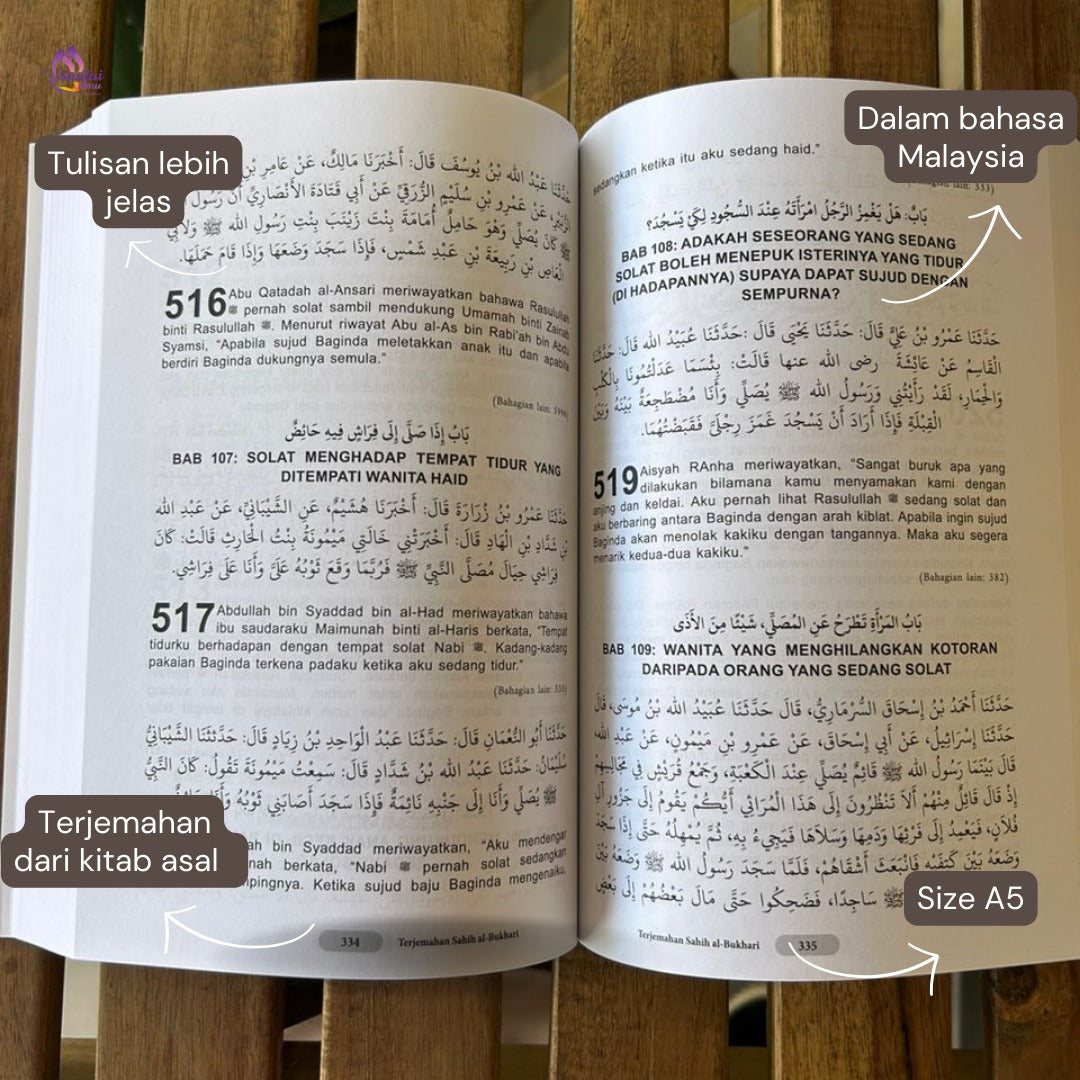 Tulisan lebih
jelas
حَدَّثَنَا عَبْدُ الله بْنُ يُوسُفَ قَالَ: أَخْبَرَنَا مَالِكٌ، عَنْ عَامِرِ بْنِ
الزُّبَيْرِ، عَنْ عَمْرِو بْنِ سُلَيْمٍ الزُّرَقِيِّ عَنْ أَبِي قَتَادَةَ الأَنْصَارِيِّ أَنَّ رَسُولَ
ﷺ كَانَ يُصَلِّي وَهْوَ حَامِلٌ أُمَامَةَ بِنْتَ زَيْنَبَ بِنْتِ رَسُولِ الله ﷺ وَلأَبِي
الْعَاصِ بْنِ رَبِيعَةَ بْنِ عَبْدِ شَمْسٍ، فَإِذَا سَجَدَ وَضَعَهَا وَإِذَا قَامَ حَمَلَهَا.
516 Abu Qatadah al-Ansari meriwayatkan bahawa Rasulullah
ﷺ pernah solat sambil mendukung Umamah binti Zainab
binti Rasulullah ﷺ. Menurut riwayat Abu al-As bin Rabi'ah bin Abdu
Syamsi, “Apabila sujud Baginda meletakkan anak itu dan apabila
berdiri Baginda dukungnya semula.”
(Bahagian lain: 5996)
بَابُ إِذَا صَلَّى إِلَى فِرَاشٍ فِيهِ حَائِضٌ
BAB 107: SOLAT MENGHADAP TEMPAT TIDUR YANG
DITEMPATI WANITA HAID
حَدَّثَنَا عَمْرُو بْنُ زُرَارَةَ قَالَ: أَخْبَرَنَا هُشَيْمٌ، عَنِ الشَّيْبَانِيِّ، عَنْ عَبْدِ الله
بْنِ شَدَّادِ بْنِ الْهَادِ قَالَ: أَخْبَرَتْنِي خَالَتِي مَيْمُونَةُ بِنْتُ الْحَارِثِ قَالَتْ: كَانَ
فِرَاشِي حِيَالَ مُصَلَّى النَّبِيِّ ﷺ فَرُبَّمَا وَقَعَ ثَوْبُهُ عَلَيَّ وَأَنَا عَلَى فِرَاشِي.
517 Abdullah bin Syaddad bin al-Had meriwayatkan bahawa
ibu saudaraku Maimunah binti al-Haris berkata, “Tempat
tidurku berhadapan dengan tempat solat Nabi ﷺ. Kadang-kadang
pakaian Baginda terkena padaku ketika aku sedang tidur.”
(Bahagian lain: 333)
حَدَّثَنَا أَبُو النُّعْمَانِ قَالَ: حَدَّثَنَا عَبْدُ الْوَاحِدِ بْنُ زِيَادٍ قَالَ: حَدَّثَنَا الشَّيْبَانِيُّ
سُلَيْمَانُ: حَدَّثَنَا عَبْدُ الله بْنُ شَدَّادٍ قَالَ: سَمِعْتُ مَيْمُونَةَ تَقُولُ: كَانَ النَّبِيُّ
ﷺ يُصَلِّي وَأَنَا إِلَى جَنْبِهِ نَائِمَةٌ فَإِذَا سَجَدَ أَصَابَنِي ثَوْبُهُ وَأَنَا
Terjemahan
dari kitab asal
bin Syaddad meriwayatkan, “Aku mendengar
berkata, “Nabi ﷺ pernah solat sedangkan
Ketika sujud baju Baginda mengenaiku,
334 Terjemahan Sahih al-Bukhari
Dalam bahasa
Malaysia
sedangkan ketika itu aku sedang haid.”
lain: 333)
بَابٌ: هَلْ يَغْمِزُ الرَّجُلُ امْرَأَتَهُ عِنْدَ السُّجُودِ لِكَيْ يَسْجُدَ؟
BAB 108: ADAKAH SESEORANG YANG SEDANG
SOLAT BOLEH MENEPUK ISTERINYA YANG TIDUR
(DI HADAPANNYA) SUPAYA DAPAT SUJUD DENGAN
SEMPURNA?
حَدَّثَنَا عَمْرُو بْنُ عَلِيٍّ قَالَ: حَدَّثَنَا يَحْيَى قَالَ :حَدَّثَنَا عُبَيْدُ الله قَالَ: حَدَّثَنَا
الْقَاسِمُ عَنْ عَائِشَةَ رضى الله عنها قَالَتْ: بِئْسَمَا عَدَلْتُمُونَا بِالْكَلْبِ
وَالْحِمَارِ، لَقَدْ رَأَيْتُنِي وَرَسُولُ الله ﷺ يُصَلِّي وَأَنَا مُضْطَجِعَةٌ بَيْنَهُ وَبَيْنَ
الْقِبْلَةِ فَإِذَا أَرَادَ أَنْ يَسْجُدَ غَمَزَ رِجْلَيَّ فَقَبَضْتُهُمَا.
519 Aisyah RAnha meriwayatkan, “Sangat buruk apa yang
dilakukan bilamana kamu menyamakan kami dengan
anjing dan keldai. Aku pernah lihat Rasulullah ﷺ sedang solat dan
aku berbaring antara Baginda dengan arah kiblat. Apabila ingin sujud
Baginda akan menolak kakiku dengan tangannya. Maka aku segera
menarik kedua-dua kakiku.”
(Bahagian lain: 382)
بَابُ المَرْأَةِ تَطْرَحُ عَنِ المُصَلِّي، شَيْئًا مِنَ الأَذَى
BAB 109: WANITA YANG MENGHILANGKAN KOTORAN
DARIPADA ORANG YANG SEDANG SOLAT
حَدَّثَنَا أَحْمَدُ بْنُ إِسْحَاقَ السُّرْمَارِيُّ، قَالَ حَدَّثَنَا عُبَيْدُ الله بْنُ مُوسَى، قَالَ
حَدَّثَنَا إِسْرَائِيلُ، عَنْ أَبِي إِسْحَاقَ، عَنْ عَمْرِو بْنِ مَيْمُونٍ، عَنْ عَبْدِ الله،
قَالَ بَيْنَمَا رَسُولُ الله ﷺ قَائِمٌ يُصَلِّي عِنْدَ الْكَعْبَةِ، وَجَمْعُ قُرَيْشٍ فِي مَجَالِسِهِمْ
إِذْ قَالَ قَائِلٌ مِنْهُمْ أَلاَ تَنْظُرُونَ إِلَى هَذَا الْمُرَائِي أَيُّكُمْ يَقُومُ إِلَى جَزُورِ آلِ
فُلاَنٍ، فَيَعْمِدُ إِلَى فَرْثِهَا وَدَمِهَا وَسَلاَهَا فَيَجِيءُ بِهِ، ثُمَّ يُمْهِلُهُ حَتَّى إِذَا سَجَدَ
وَضَعَهُ بَيْنَ كَتِفَيْهِ فَانْبَعَثَ أَشْقَاهُمْ، فَلَمَّا سَجَدَ رَسُولُ الله ﷺ وَضَعَهُ بَيْنَ
ﷺ سَاجِدًا، فَضَحِكُوا حَتَّى مَالَ بَعْضُهُمْ إِلَى بَعْضٍ
Size A5
Terjemahan Sahih al-Bukhari 335